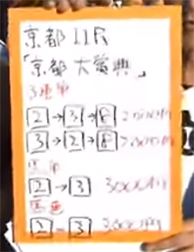 京都11R
「京都大賞典」
3連単
2→3→8 2000円
3→2→8 2000円
馬単
2→3 3000円
馬連
2-3 3000円